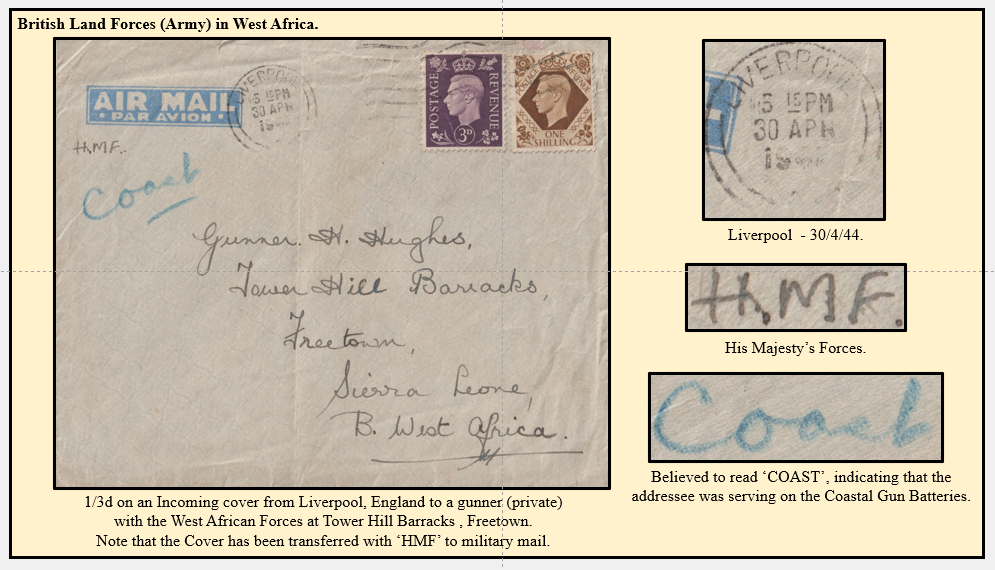 British Land Forces (Army) in West Africa.
AIR MAIL
PAR AVION
LIVERPOOL
6 15PM
30 APR
POSTAGE REVENUE
3D
POSTAGE REVENUE
ONE
SHILLING
H.M.F.
Coast
Gunner. H. Hughes,
Tower Hill Barracks,
Freetown,
Sierra Leone,
B. West Africa.
1/3d on an Incoming cover from Liverpool, England to a gunner (private)
with the West African Forces at Tower Hill Barracks , Freetown.
Note that the Cover has been transferred with ‘HMF’ to military mail.
LIVERPOOL
6 15PM
30 APR
Liverpool - 30/4/44.
H.M.F.
His Majesty’s Forces.
Coast
Believed to read ‘COAST’, indicating that the
addressee was serving on the Coastal Gun Batteries.